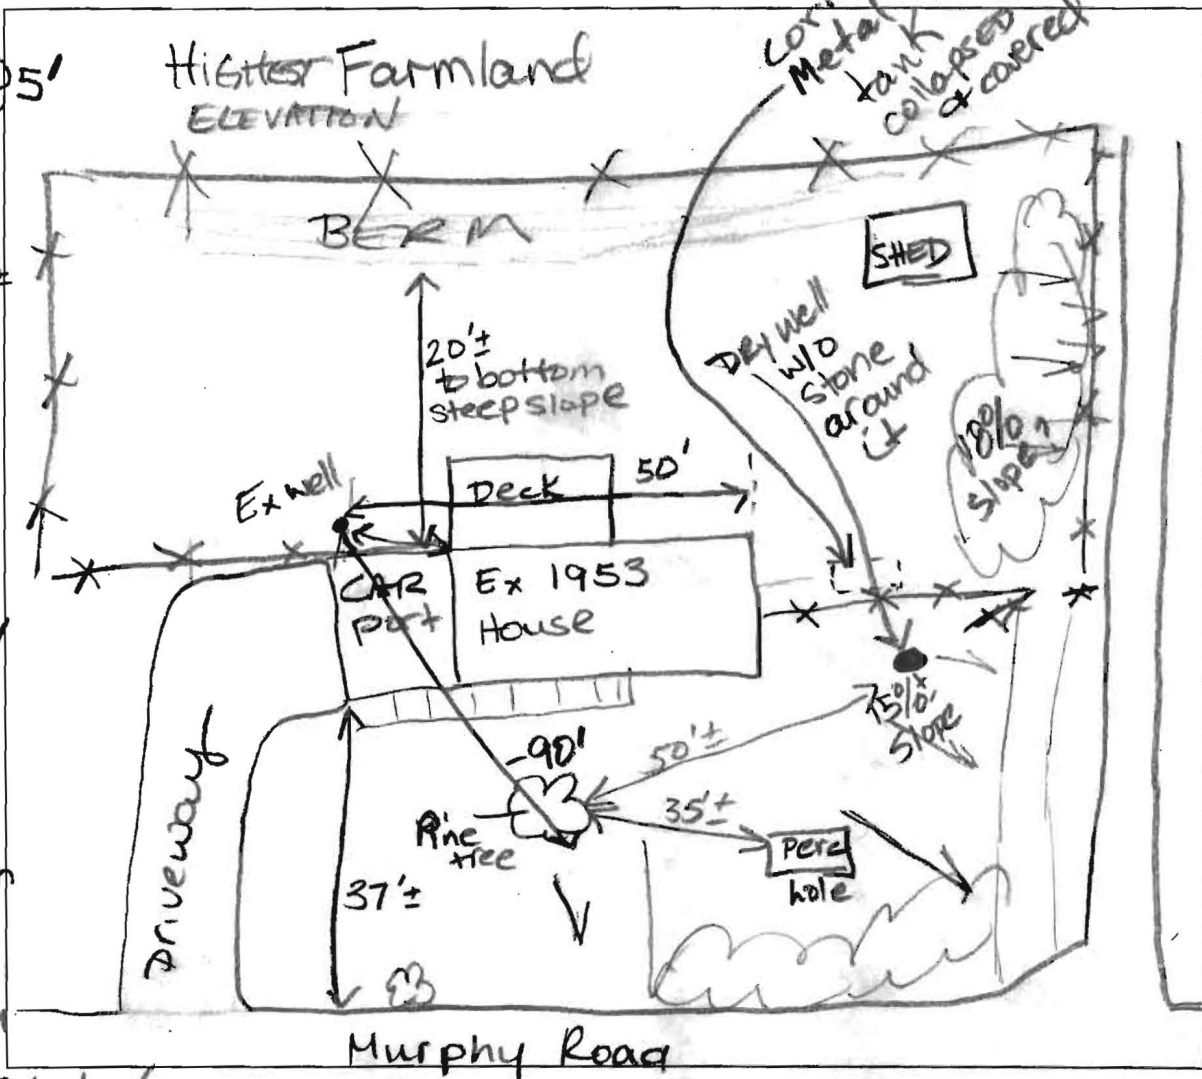 5'
Highest Farmland
ELEVATION
Metal
tank
collapsed
& covered
BERM
SHED
20'±
to bottom
steep slope
Dry well
w/o
stone
around
it
18%
slope
Ex well
Deck
50'
CAR
port
Ex 1953
House
Driveway
slope
90'
50'±
35'±
Pine
tree
Perc
hole
37'±
Murphy Road